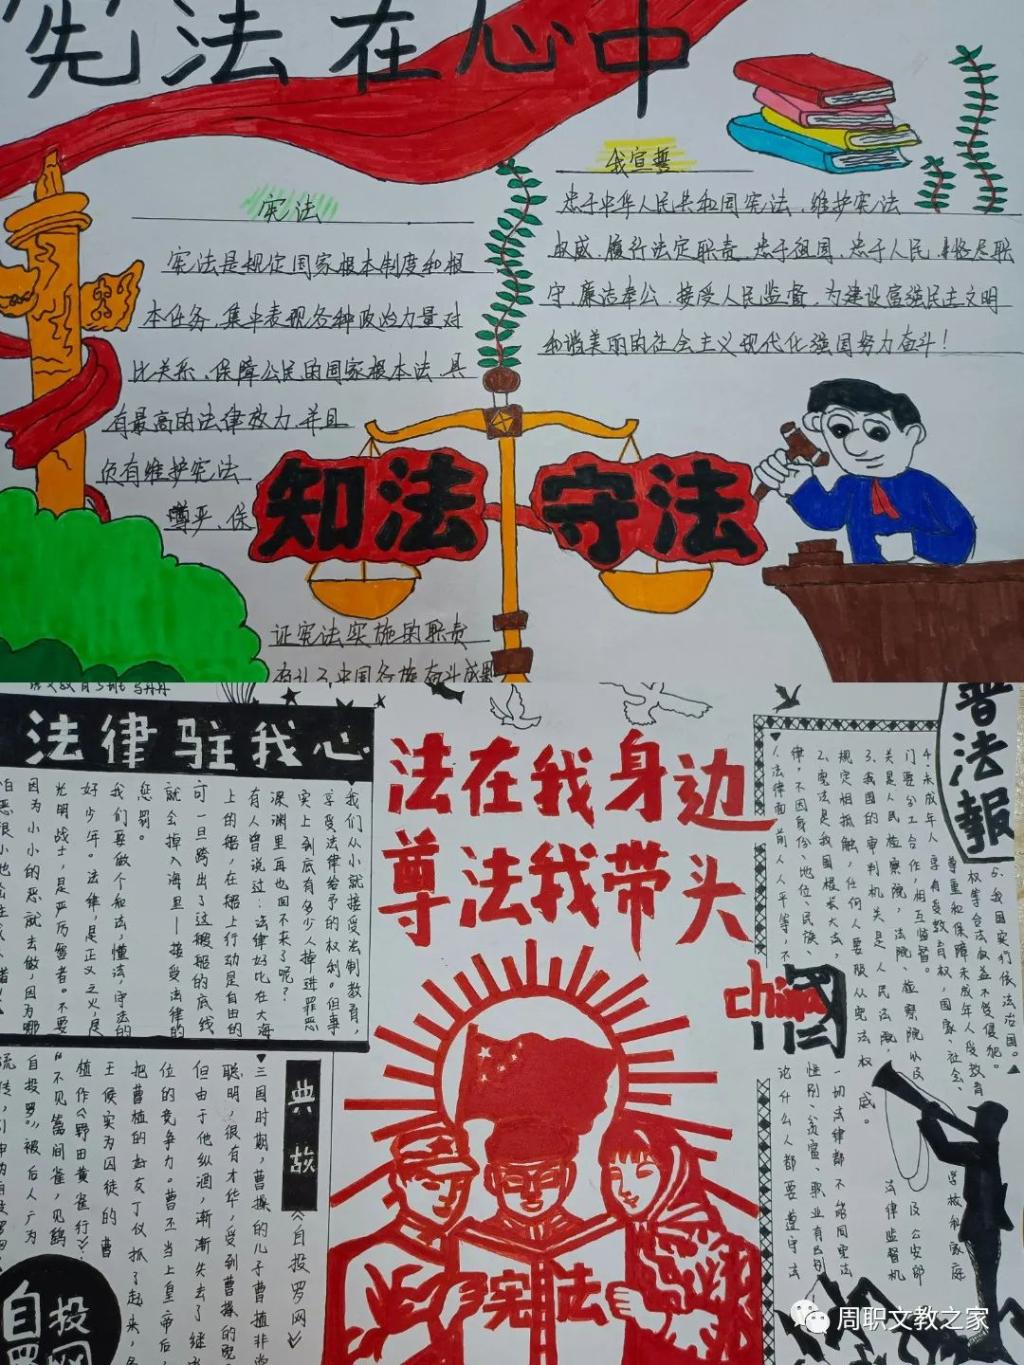 宪法在心中
宪法
宪法是规定国家根本制度和根
本任务、集中表现各种政治力量对
比关系、保障公民的国家根本法,具
有最高的法律效力,并且
负有维护宪法
尊严、保
证宪法实施的职责
我宣誓
忠于中华人民共和国宪法,维护宪法
权威,履行法定职责,忠于祖国,忠于人民,恪尽职
守,廉洁奉公,接受人民监督,为建设富强民主文明
和谐美丽的社会主义现代化强国努力奋斗!
知法
守法
法律驻我心
▼我们从小就接受法制教育,
享受法律给予的权利。但事
实上到底有多少人掉进罪恶
深渊里再也回不来了呢?
有人曾说过:法律好比在大海
上的船,在船上行动是自由的
可一旦跨出了这艘船的底线
就会掉入海里——接受法律的
惩罚。
我们要做个知法,懂法,守法的
好少年。法律,是正义之火,是
光明战士,是严厉警者。不要
因为小小的恶就去做,因为哪
法在我身边
尊法我带头
普法報
1.法律面前人人平等,不
律,不因身份、地位、民族、
2.宪法是我国根本大法,
规定相抵触,任何人要服从宪法权威。
3.我国的审判机关是人民法院,
关是人民检察院,法院、检察院以及
门要分工合作,相互监督。
4.未成年人享有受教育权,国家、社会、
尊重和保障未成年人受教育
权等合法权益不受侵犯。
5.我国实行依法治国。▲
china
国
一切法律都不能同宪法
性别、贫富、职业有出别
论什么人都要遵守法
及公安部
法律监督机
学校和家庭
典故
《自投罗网》
▼三国时期,曹操的儿子曹植非常
聪明,很有才华,受到曹操的
但由于他纵酒,渐渐失去了继
位的竞争力。曹丕当上皇帝后,
把曹植的好友丁仪抓了起来,
王侯实为囚徒的曹
植作《野田黄雀行》:
“不见篱间雀,见鹞
自投罗”被后人广为
自
投网
宪法
周职文教之家